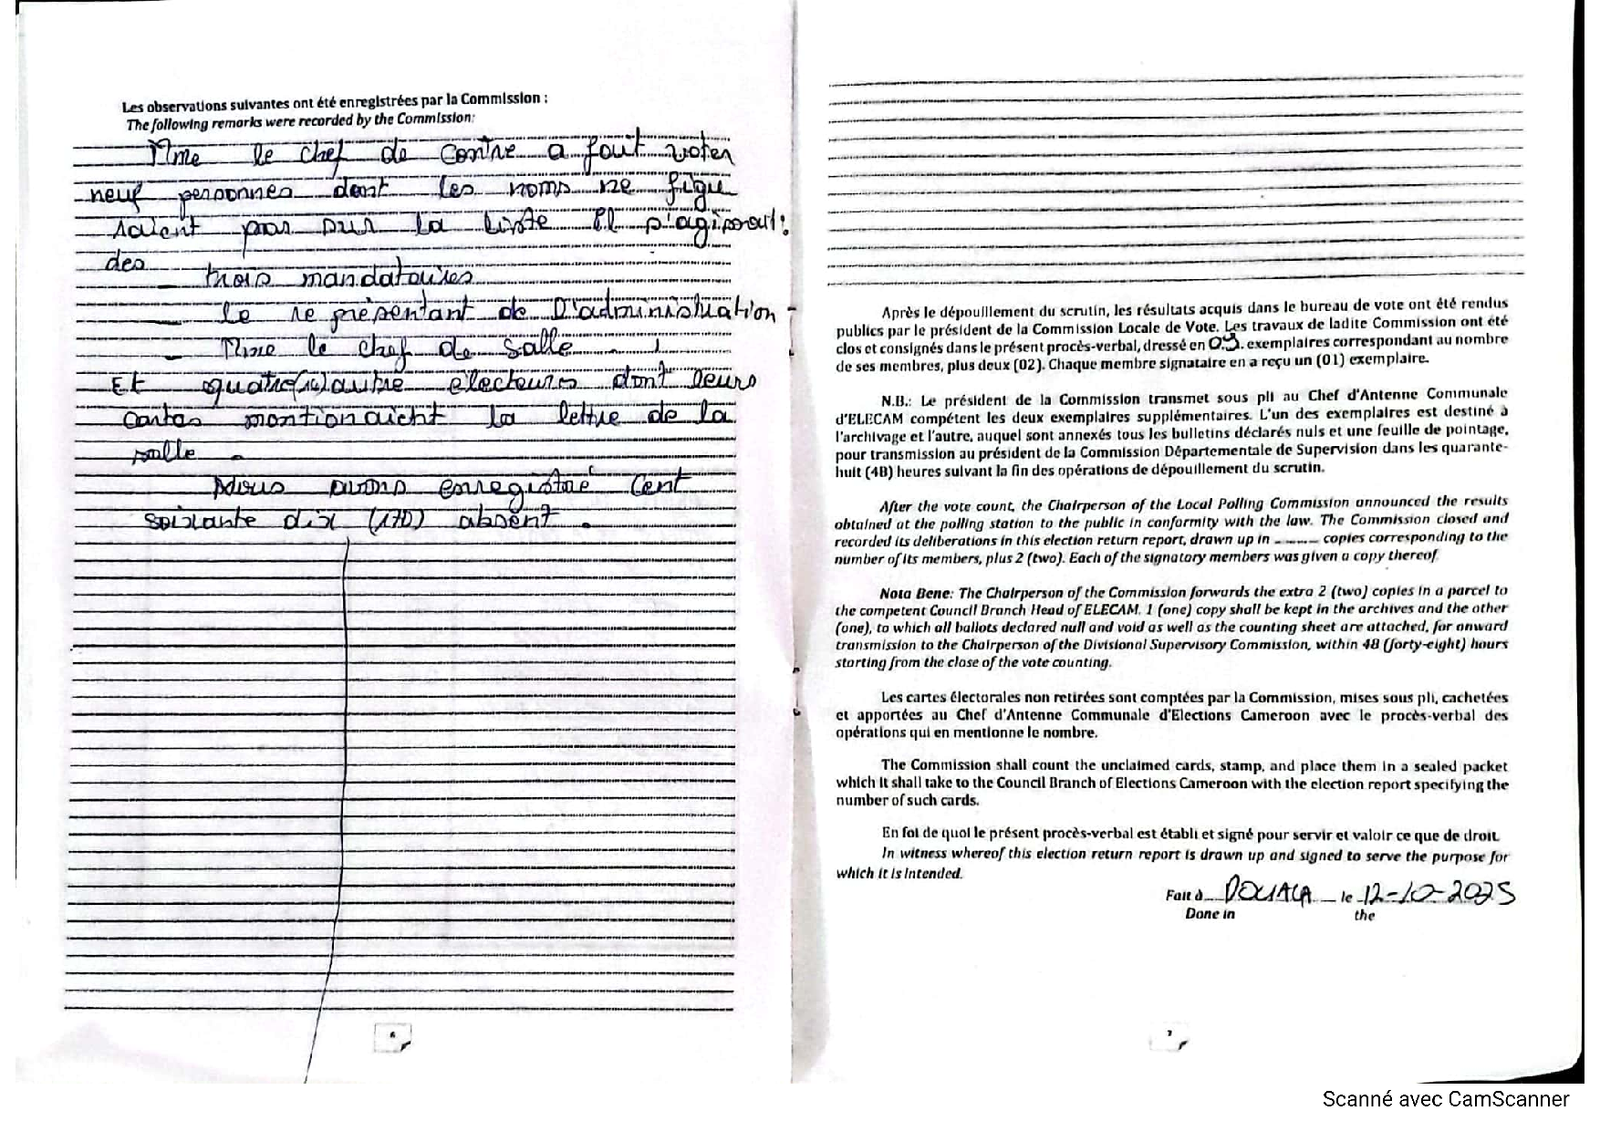 Les observations suivantes ont été enregistrées par la Commission :
The following remarks were recorded by the Commission:
Mme le chef de Centre a fait voter
neuf personnes dont les noms ne figu
raient pas sur la liste Il s'agissait:
des
- trois mandataires
- Le représentant de D'administration
- Mme le chef de Salle
Et quatre autre électeurs dont leurs
cartes mentionaient la lettre de la
salle.
Nous avons enregistré Cent
soixante dix (170) absent.
6
Après le dépouillement du scrutin, les résultats acquis dans le bureau de vote ont été rendus
publics par le président de la Commission Locale de Vote. Les travaux de ladite Commission ont été
clos et consignés dans le présent procès-verbal, dressé en exemplaires correspondant au nombre
de ses membres, plus deux (02). Chaque membre signataire en a reçu un (01) exemplaire.
N.B.: Le président de la Commission transmet sous pli au Chef d'Antenne Communale
d'ELECAM compétent les deux exemplaires supplémentaires. L'un des exemplaires est destiné à
l'archivage et l'autre, auquel sont annexés tous les bulletins déclarés nuls et une feuille de pointage,
pour transmission au président de la Commission Départementale de Supervision dans les quarante-
huit (48) heures suivant la fin des opérations de dépouillement du scrutin.
After the vote count, the Chairperson of the Local Polling Commission announced the results
obtained at the polling station to the public in conformity with the law. The Commission closed and
recorded its deliberations in this election return report, drawn up in ........ copies corresponding to the
number of its members, plus 2 (two). Each of the signatory members was given a copy thereof.
Nota Bene: The Chairperson of the Commission forwards the extra 2 (two) copies in a parcel to
the competent Council Branch Head of ELECAM. 1 (one) copy shall be kept in the archives and the other
(one), to which all ballots declared null and void as well as the counting sheet are attached, for onward
transmission to the Chairperson of the Divisional Supervisory Commission, within 48 (forty-eight) hours
starting from the close of the vote counting.
Les cartes électorales non retirées sont comptées par la Commission, mises sous pli, cachetées
et apportées au Chef d'Antenne Communale d'Elections Cameroon avec le procès-verbal des
opérations qui en mentionne le nombre.
The Commission shall count the unclaimed cards, stamp, and place them in a sealed packet
which it shall take to the Council Branch of Elections Cameroon with the election report specifying the
number of such cards.
En foi de quoi le présent procès-verbal est établi et signé pour servir et valoir ce que de droit.
In witness whereof this election return report is drawn up and signed to serve the purpose for
which it is intended.
Fait à DOUALA le 12-10-2025
Done in the
7
Scanné avec CamScanner